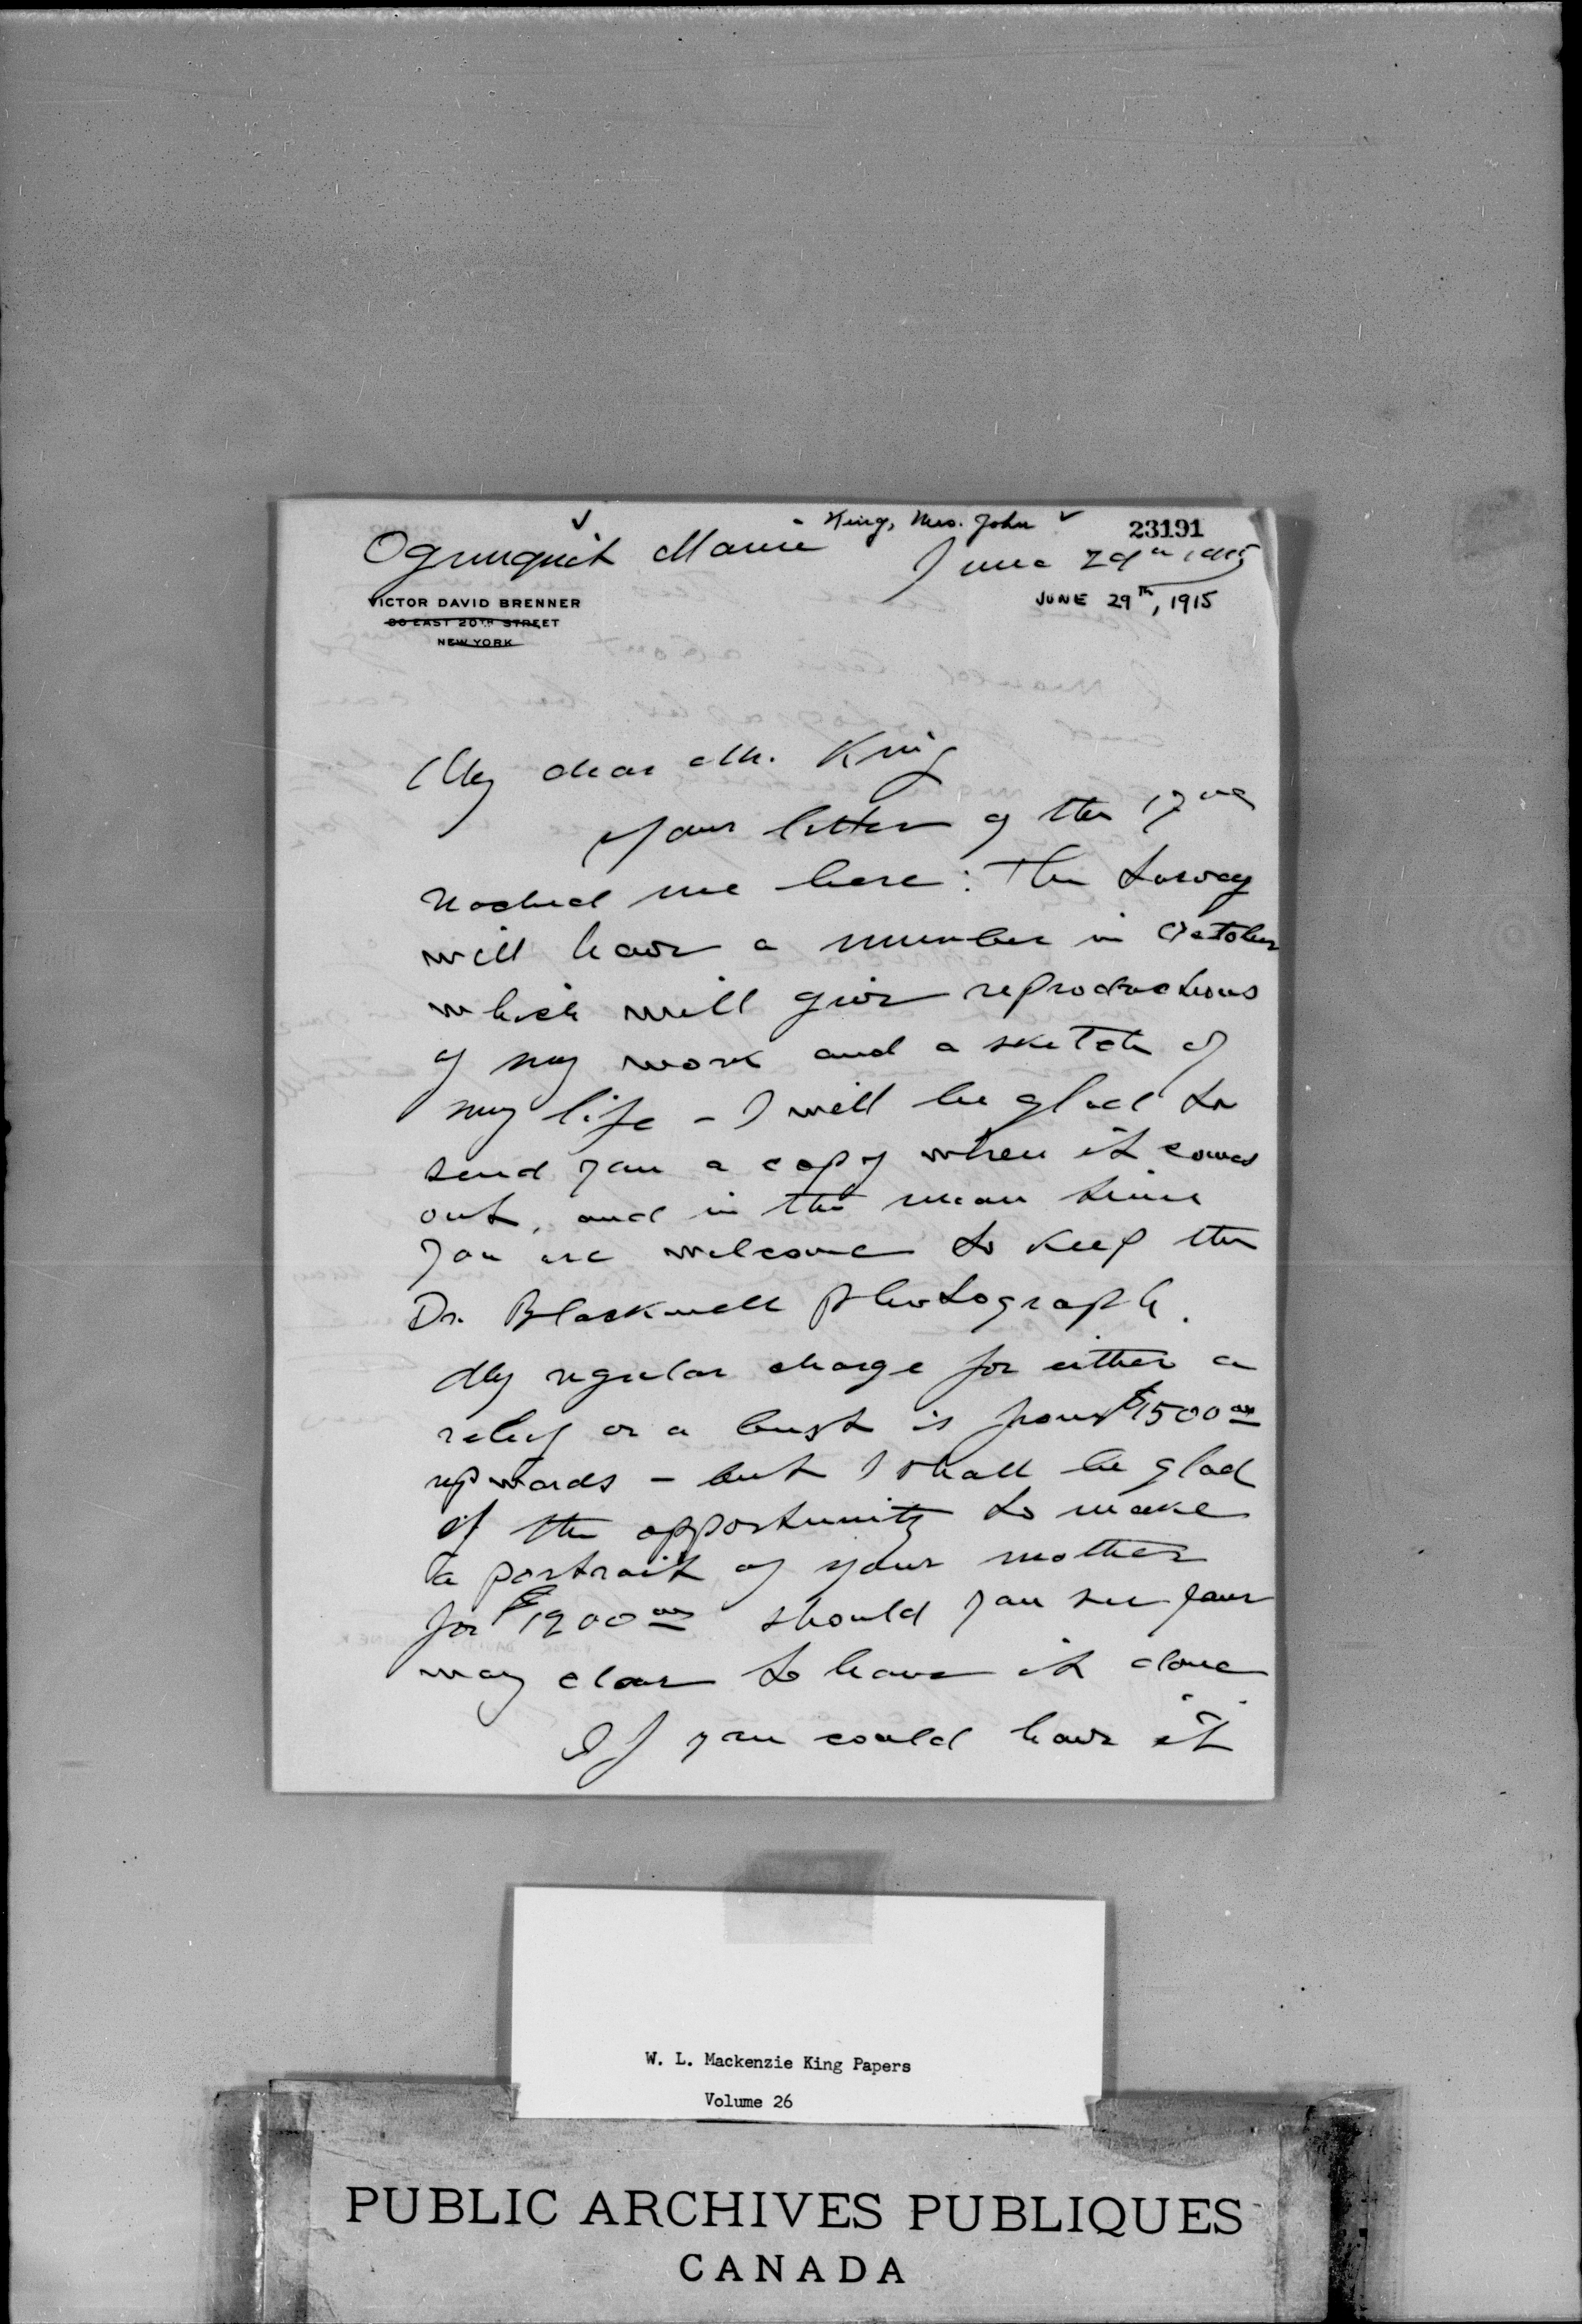 King, Mrs. John
23191
Ogunquit Maine
June 29th 1915
JUNE 29TH, 1915
VICTOR DAVID BRENNER
80 EAST 20TH STREET
NEW YORK
My dear Mr. King
Your letter of the 17
reached me here: The Survey
will have a number in October
which will give reproductions
of my work and a sketch of
my life - I will be glad to
send you a copy when it comes
out, and in the mean time
you are welcome to keep the
Dr. Blackwell photograph.
My regular charge for either a
relief or a bust is from $1500 00
upwards - but I shall be glad
of the opportunity to make
a portrait of your mother
for $1200 00 should you see your
way clear to have it done
If you could have it
W. L. Mackenzie King Papers
Volume 26
PUBLIC ARCHIVES PUBLIQUES
CANADA